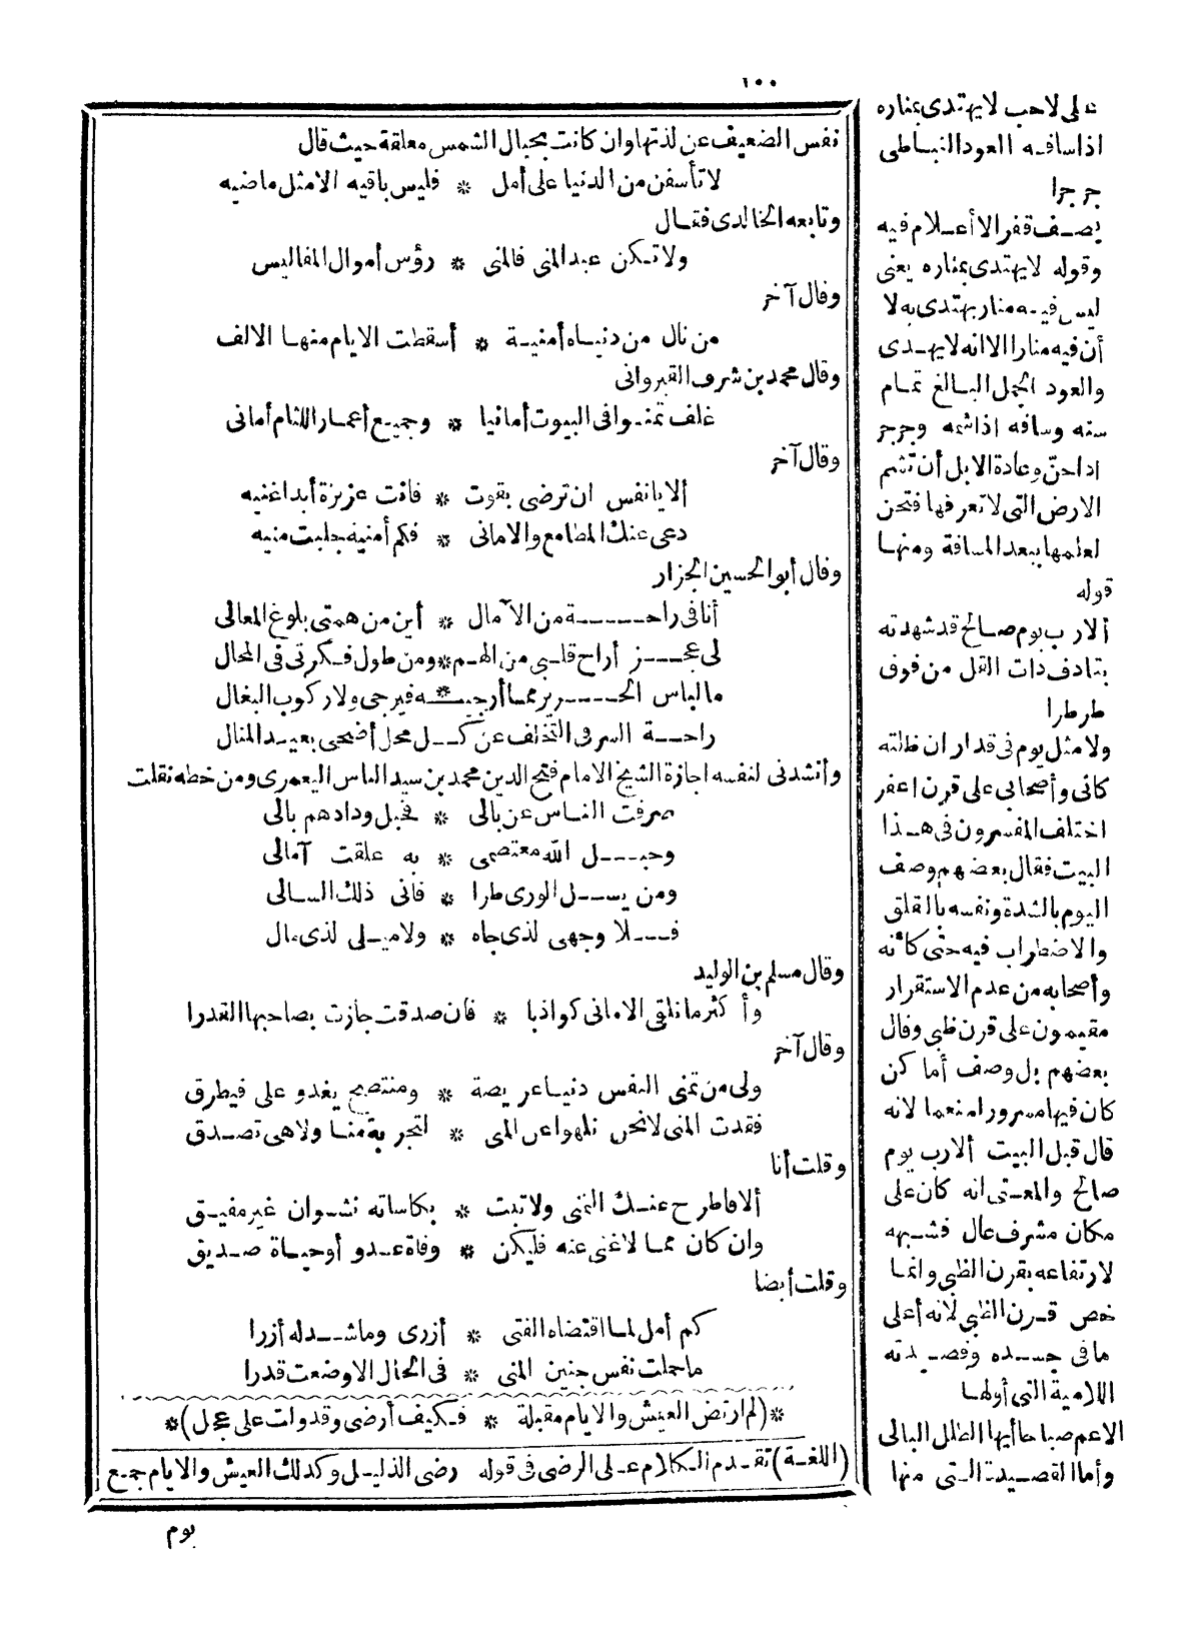 ١٠٠
نفس الضعيف عن لذتها وان كانت بحبال الشمس معلقة حيث قال
لا تأسفن من الدنيا على أمل * فليس باقيه الا مثل ماضيه
وتابعه الخالدى فقال
ولا تكن عبد المنى فالمنى * رؤس أموال المفاليس
وقال آخر
من نال من دنياه أمنية * أسقطت الايام منها الالف
وقال محمد بن شرف القيروانى
غلف تمنوا فى البيوت أمانيا * وجميع أعمار اللئام أمانى
وقال آخر
ألا يا نفس ان ترضى بقوت * فانت عزيزة أبدا غنيه
دعى عنك المطامع والامانى * فكم أمنية جلبت منيه
وقال أبو الحسين الجزار
أنا فى راحة من الآمال * أين من همتى بلوغ المعالى
لى عجز أراح قلبى من الهم * ومن طول فكرتى فى المحال
ما لباس الحرير مما أرجيه * فيرجى ولا ركوب البغال
راحة السر فى التخلف عن كل محل أضحى بعيد المنال
وأنشدنى لنفسه اجازة الشيخ الامام فتح الدين محمد بن سيد الناس اليعمرى ومن خطه نقلت
صرفت الناس عن بالى * فحبل ودادهم بالى
وحبل الله معتصمى * به علقت آمالى
ومن يسل الورى طرا * فانى ذلك السالى
فلا وجهى لذى جاه * ولا ميلى لذى مال
وقال مسلم بن الوليد
وأكثر ما تلقى الامانى كواذبا * فان صدقت جازت بصاحبها القدرا
وقال آخر
ولى من تمنى النفس دنيا عريضة * ومنتصح يغدو على فيطرق
فقدت المنى لا نحن نلهو عن المنى * لتجربة منا ولا هى تصدق
وقلت أنا
ألا فاطرح عنك التمنى ولا تبت * بكاساته نشوان غير مفيق
وان كان مما لا غنى عنه فليكن * وفاة عدو أو حياة صديق
وقلت أيضا
كم أمل لما اقتضاه الفتى * أزرى وما شد له أزرا
ما حملت نفس جنين المنى * فى الحال الا وضعت قدرا
*(لم ارتض العيش والايام مقبلة * فكيف أرضى وقد ولت على عجل)*
(اللغة) تقدم الكلام على الرضى فى قوله رضى الذليل وكذلك العيش والايام جمع
يوم
على لاحب لا يهتدى بمناره
اذا سافه العود النباطى
جرجرا
يصف قفر الا أعلام فيه
وقوله لا يهتدى بمناره يعنى
ليس فيه منار يهتدى به لا
أن فيه منارا الا انه لا يهدى
والعود الجمل البالغ تمام
سنه وسافه اذا شمه وجرجر
اذا حن وعادة الابل أن تشم
الارض التى لا تعرفها فتحن
لعلمها ببعد المسافة ومنها
قوله
ألا رب يوم صالح قد شهدته
بتادف ذات التل من فوق
طرطرا
ولا مثل يوم فى قداران ظللته
كانى وأصحابى على قرن اعفر
اختلف المفسرون فى هذا
البيت فقال بعضهم وصف
اليوم بالشدة ونفسه بالقلق
والاضطراب فيه حتى كأنه
وأصحابه من عدم الاستقرار
مقيمون على قرن ظبى وقال
بعضهم بل وصف أماكن
كان فيها مسرورا منعما لانه
قال قبل البيت ألا رب يوم
صالح والمعنى انه كان على
مكان مشرف عال فشبهه
لارتفاعه بقرن الظبى وانما
خص قرن الظبى لانه أعلى
ما فى جسده وقصيدته
اللامية التى أولها
الا عم صباحا أيها الطلل البالى
وأما القصيدة التى منها